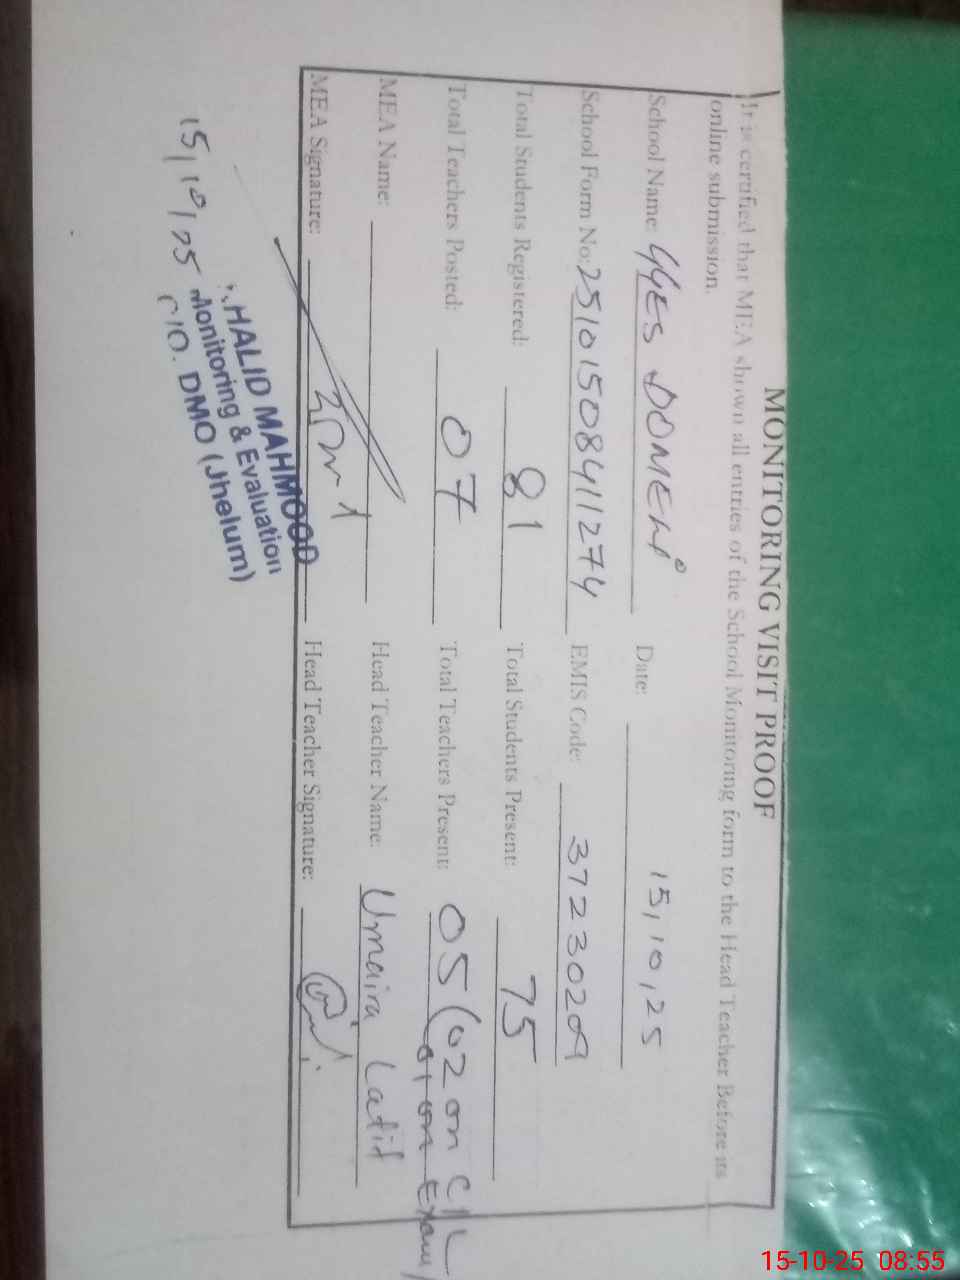 MONITORING VISIT PROOF
It is certified that MEA shown all entries of the School Monitoring form to the Head Teacher Before its
online submission.
School Name: GGES DOMELI Date: 15/10/25
School Form No: 2510150841127 4 EMIS Code: 37230209
Total Students Registered: 81 Total Students Present: 75
Total Teachers Posted: 07 Total Teachers Present: 05 (02 on C/L
01 on Exam)
MEA Name: Head Teacher Name: Umaira Latif
MEA Signature: Head Teacher Signature:
HALID MAHMOOD
Monitoring & Evaluation
O/O. DMO (Jhelum)
15/10/25
15-10-25 08:55